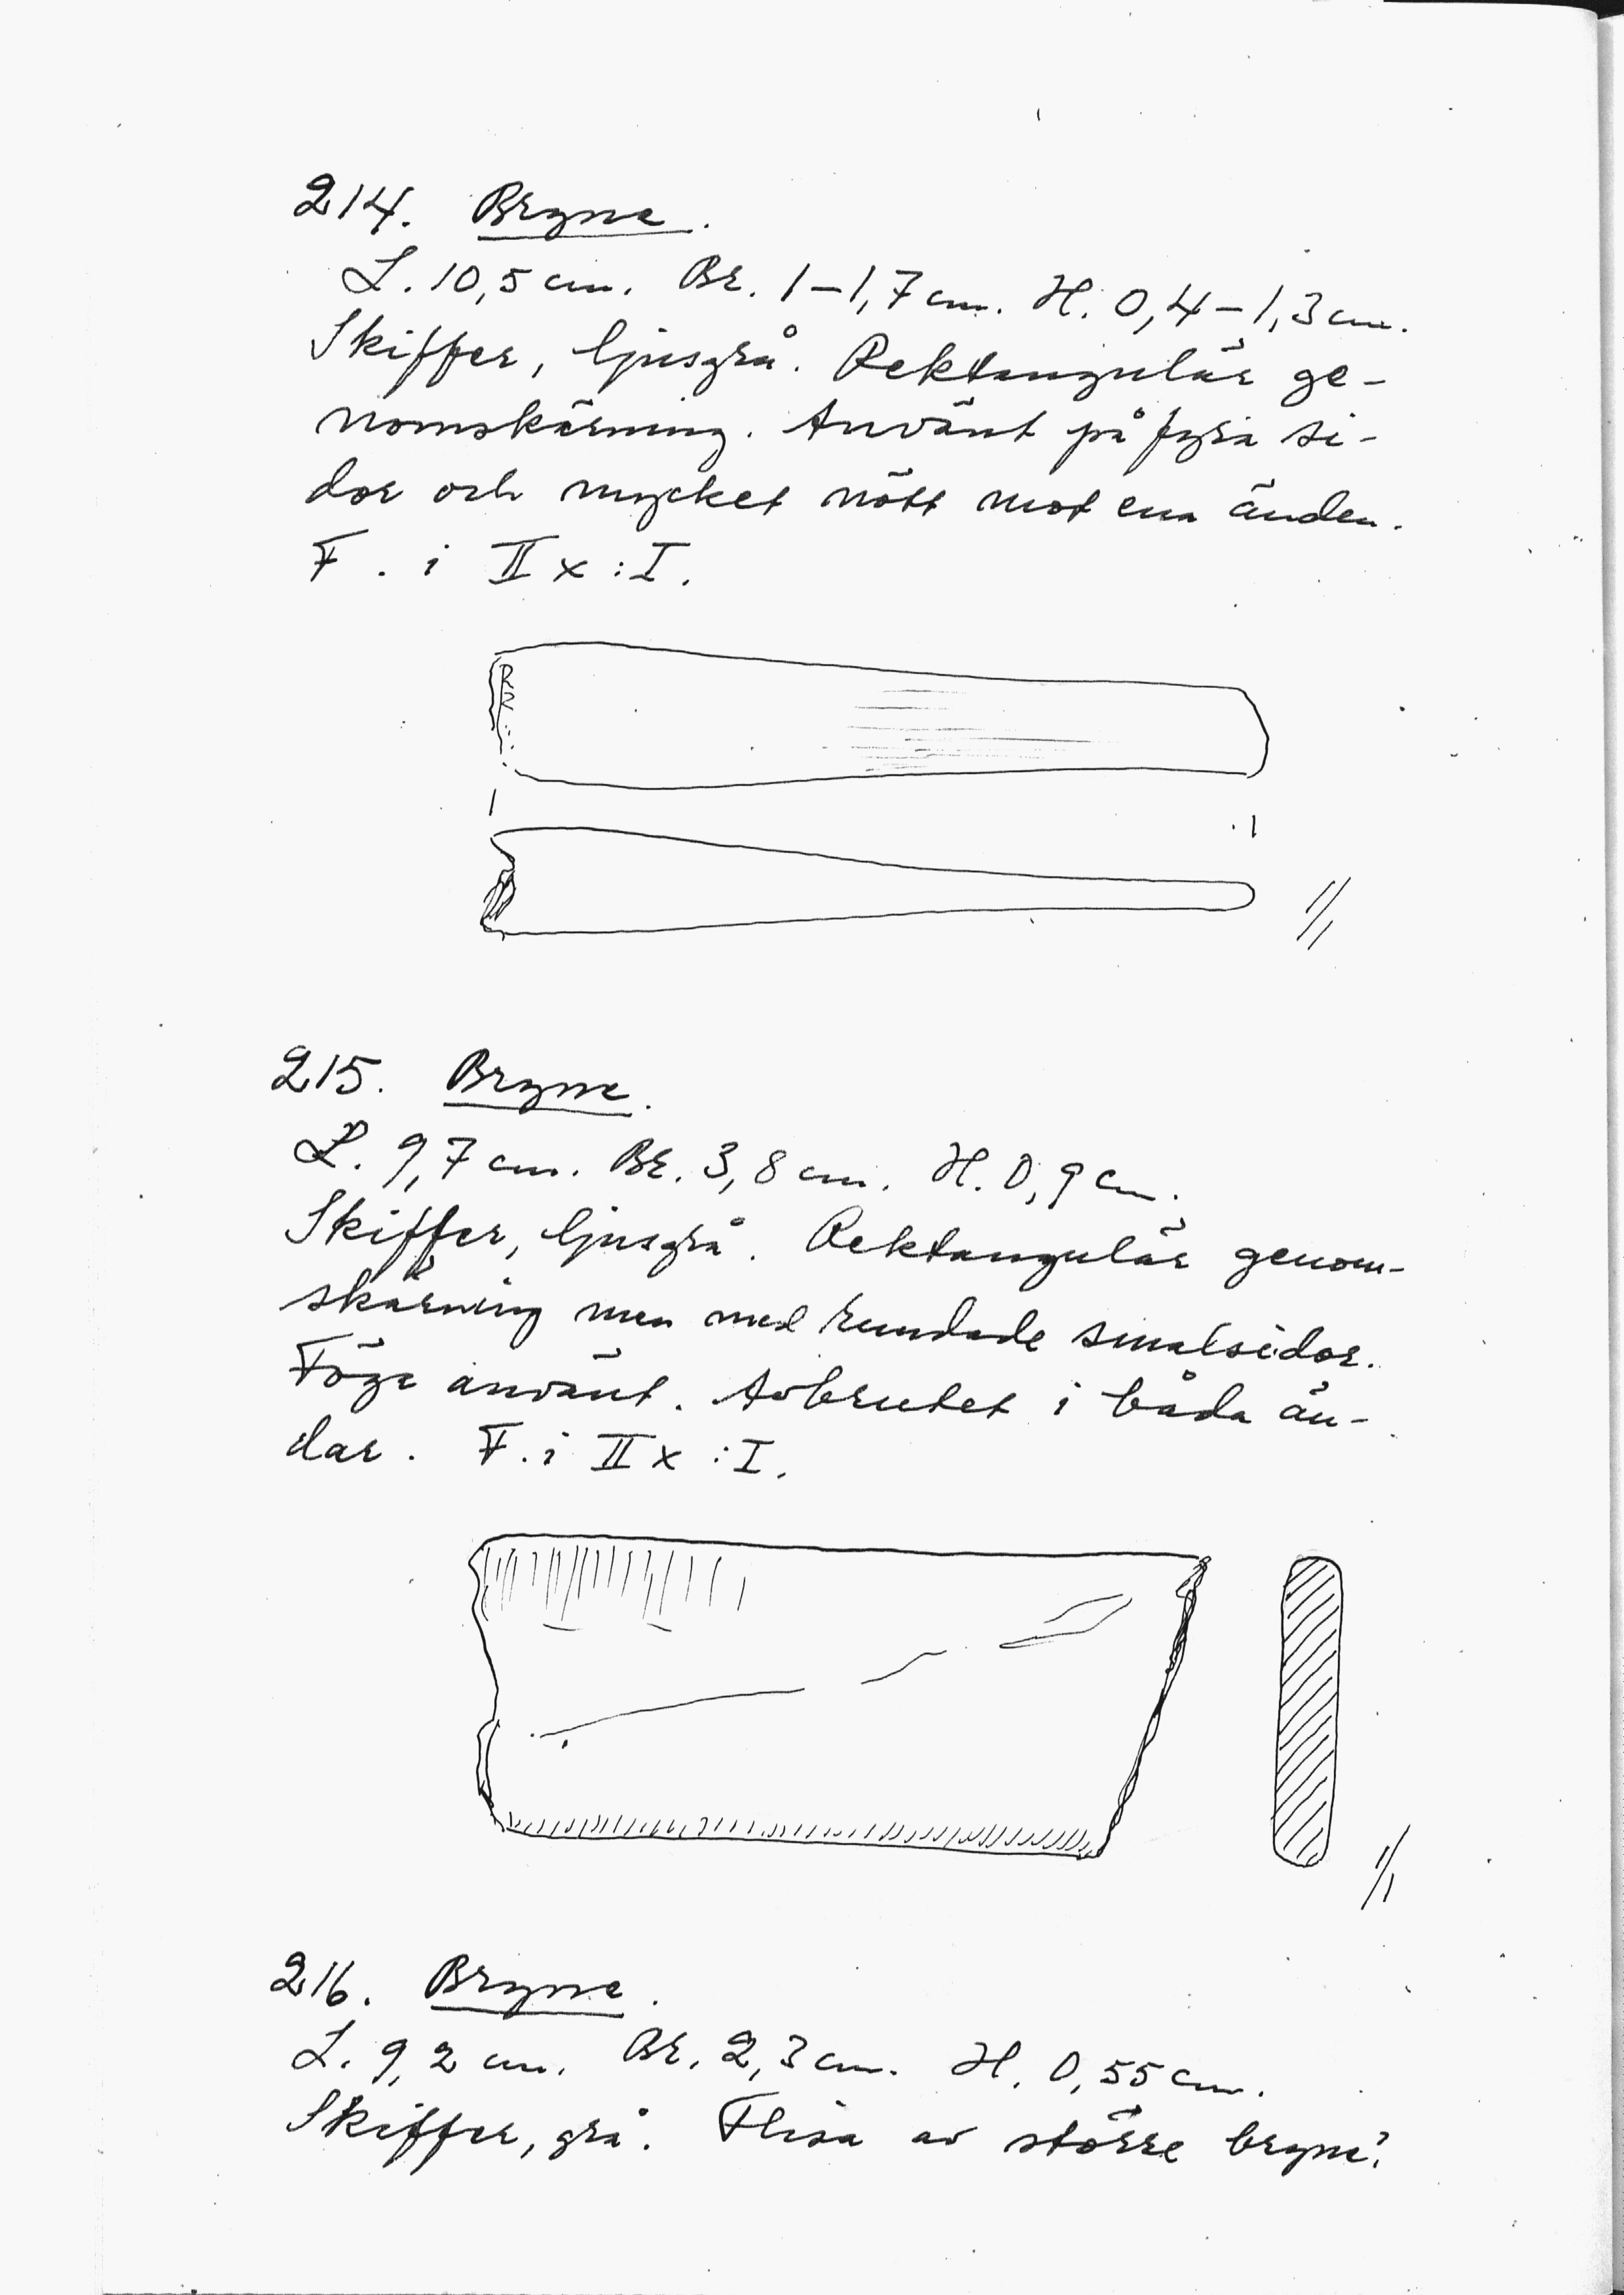 214. Bryne.
L. 10,5 cm. Br. 1–1,7 cm. H. 0,4–1,3 cm.
Skiffer, ljusgrå. Rektangulär ge-
nomskärning. Använt på fyra si-
dor och mycket nött mot ena änden.
F. i II x : I.
1/1
215. Bryne.
L. 9,7 cm. Br. 3,8 cm. H. 0,9 cm.
Skiffer, ljusgrå. Rektangulär genom-
skärning men med rundade smalsidor.
Föga använt. Avbrutet i båda än-
dar. F. i II x : I.
1/1
216. Bryne.
L. 9,2 cm. Br. 2,3 cm. H. 0,55 cm.
Skiffer, grå. Flisa av större bryne?